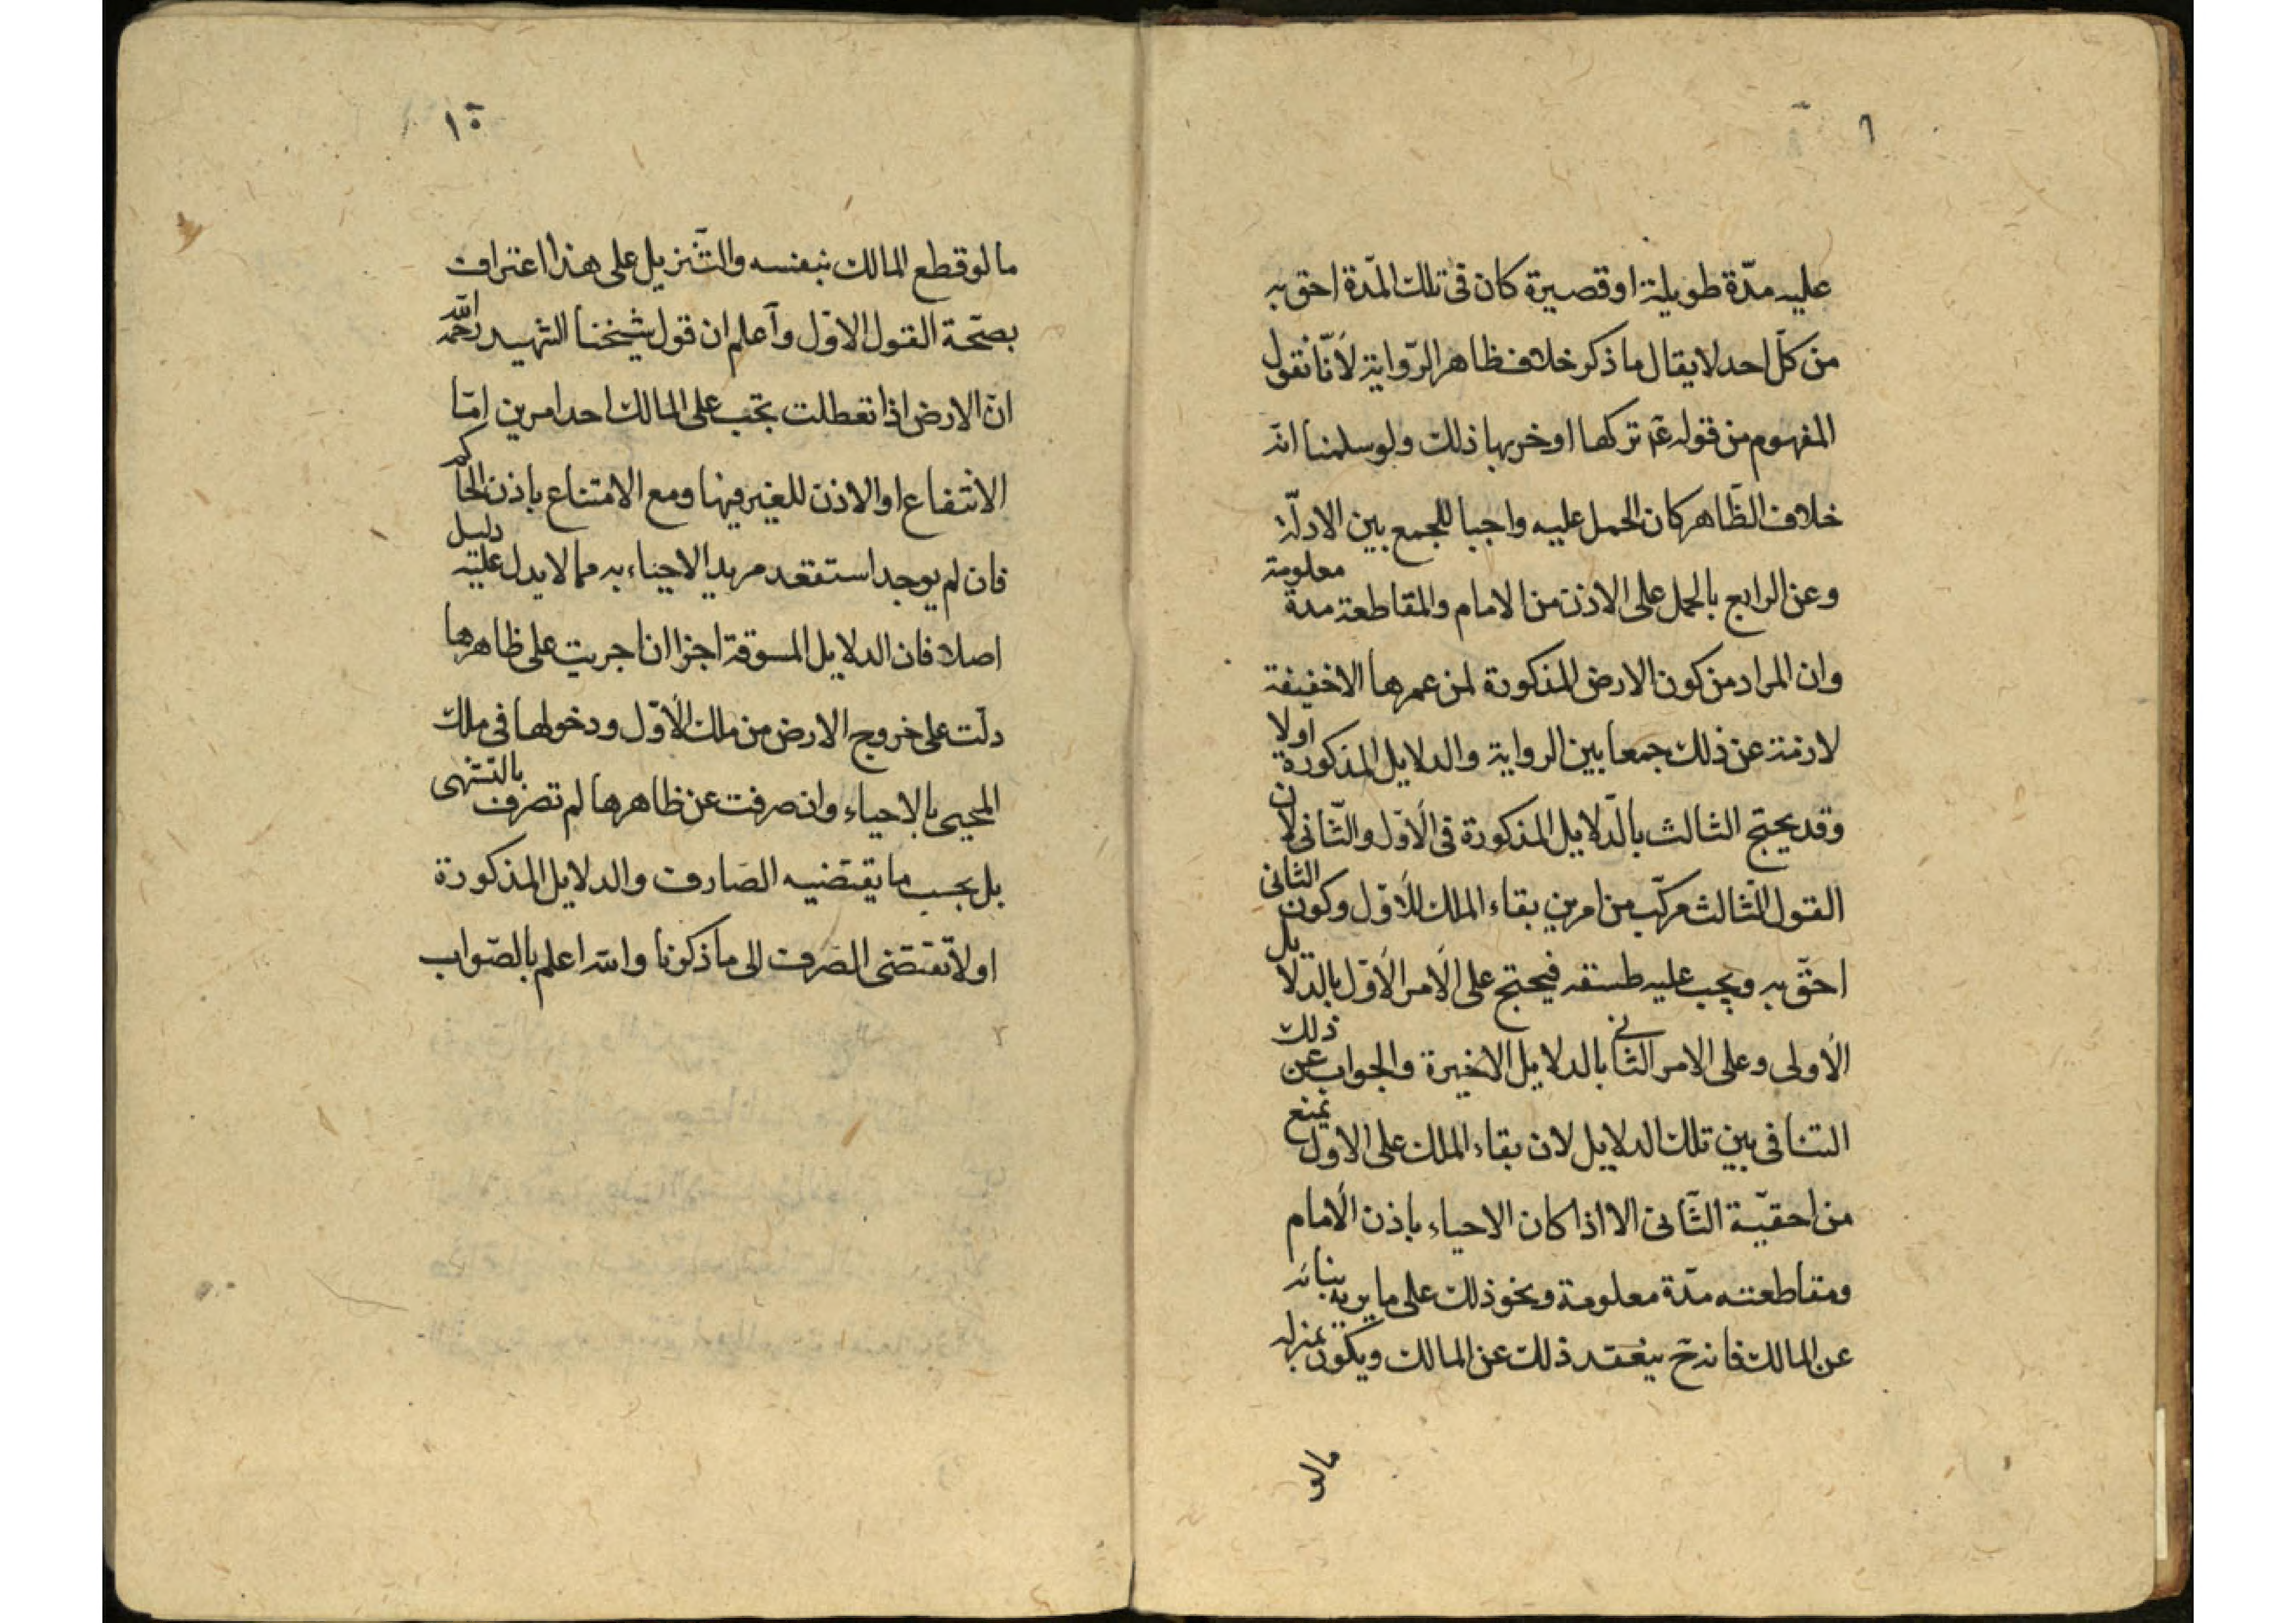 عليه مدّة طويلة او قصيرة كان فى تلك المدّة احق به
من كلّ احد لا يقال ما ذكر خلاف ظاهر الرّواية لأنّا نقول
المفهوم من قوله عم تركها او خربها ذلك ولو سلمنا انه
خلاف الظّاهر كان الحمل عليه واجبا للجمع بين الادلّة
وعن الرابع بالحمل على الاذن من الامام والمقاطعة مدة معلومة
وان المراد من كون الارض المذكورة لمن عمرها الاخفيفة
لازمة عن ذلك جمعا بين الرواية والدلايل المذكورة اولا
وقد يحتج الثالث بالدّلايل المذكورة فى الأوّل والثّانى لان
القول الثّالث مركّب من امرين بقاء الملك للأوّل وكون الثانى
احقّ به ويجب عليه طسقه فيحتج على الأمر الأوّل بالدلايل
الأولى وعلى الامر الثانى بالدلايل الاخيرة والجواب عن ذلك
التنافى بين تلك الدلايل لان بقاء الملك على الاول يمنع
من احقيّة الثّانى الا اذا كان الاحياء باذن الأمام
ومقاطعته مدّة معلومة ونحو ذلك على ما يريه بنيابته
عن المالك فانه ح ينعقد ذلك عن المالك ويكون بمنزلة
مالو
١٠
مالو قطع المالك بنفسه والتّنزيل على هذا اعتراف
بصحّة القول الاوّل وأعلم ان قول شيخنا الشهيد رحمه الله
انّ الارض اذا تعطلت يجب على المالك احد امرين امّا
الانتفاع او الاذن للغير فيها ومع الامتناع باذن الحاكم
فان لم يوجد استقعد مريد الاحياء به مما لا يدل عليه دليل
اصلا فان الدلايل المسوقة اجزا ان اجريت على ظاهرها
دلّت على خروج الارض من ملك الأوّل ودخولها فى ملك
المحيى بالاحياء وان صرفت عن ظاهرها لم تصرف بالتشهى
بل بحسب ما يقتضيه الصّارف والدلايل المذكورة
اولاً تقتضى الصّرف الى ما ذكرنا والله اعلم بالصّواب